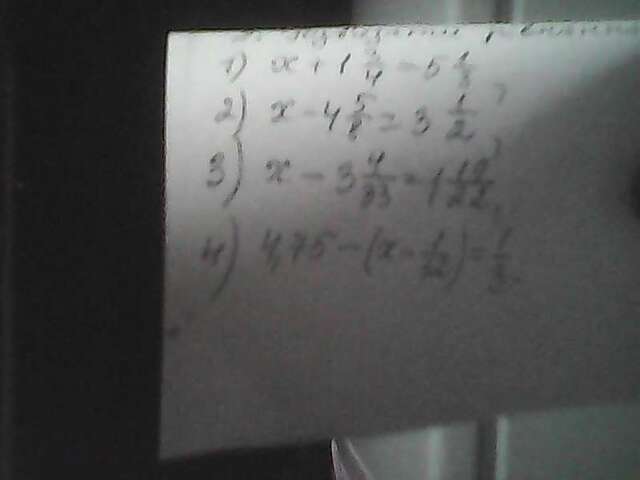 1) x + 1 3/4 = 5 1/3,
2) x - 4 5/8 = 3 1/2,
3) x - 3 4/33 = 1 19/22,
4) 4,75 - (x - 1/12) = 1/3.